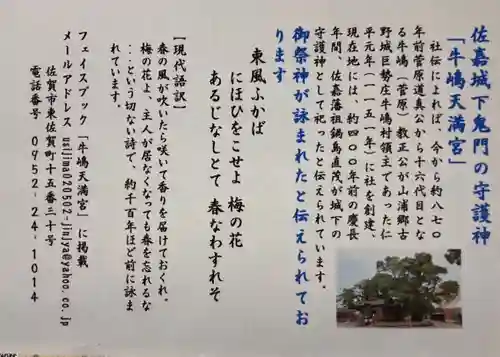 佐嘉城下鬼門の守護神
「牛嶋天満宮」
社伝によれば、今から約八七〇
年前菅原道真公から十六代目とな
る牛嶋（菅原）教正公が山浦郷古
野城巨勢庄牛嶋村領主であった仁
平元年（一一五一年）に社を創建、
現在地には、約四〇〇年前の慶長
年間、佐嘉藩祖鍋島直茂が城下の
守護神として祀ったと伝えられています。
御祭神が詠まれたと伝えられてお
ります
東風ふかば
にほひをこせよ 梅の花
あるじなしとて 春なわすれそ
【現代語訳】
春の風が吹いたら咲いて香りを届けておくれ。
梅の花よ、主人が居なくなっても春を忘れるな
‥‥という切ない詩で、約千百年ほど前に詠ま
れています。
フェイスブック「牛嶋天満宮」に掲載
メールアドレス usijima020502-jinjya@yahoo.co.jp
佐賀市東佐賀町十五番三十号
電話番号 0952-24-1014